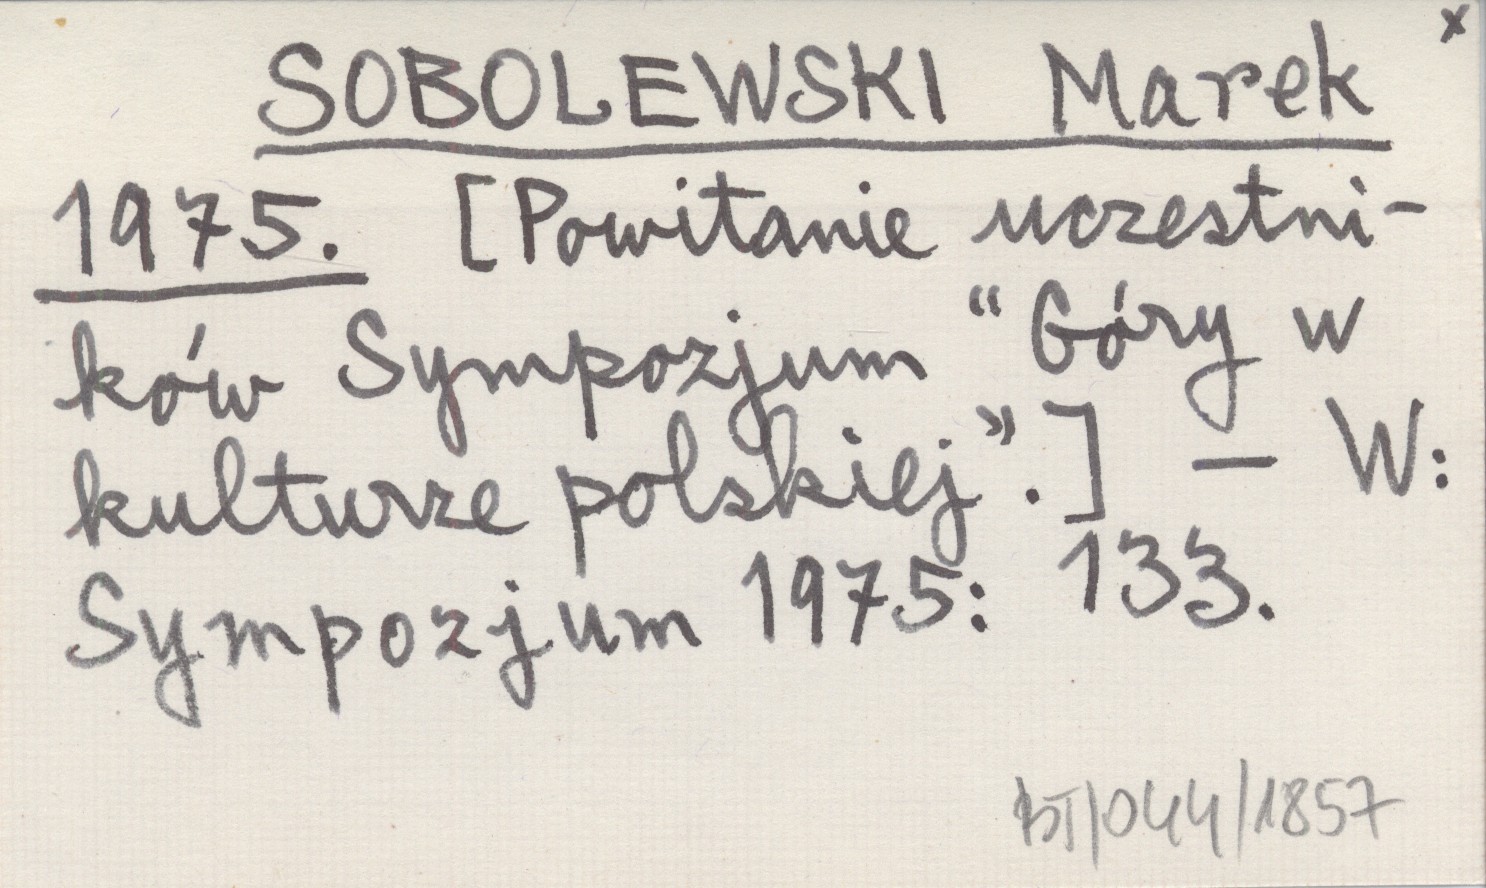 x
SOBOLEWSKI Marek
1975. [Powitanie uczestni-
ków Sympozjum “Góry w
kulturze polskiej”.] — W:
Sympozjum 1975: 133.
BT/044/1857